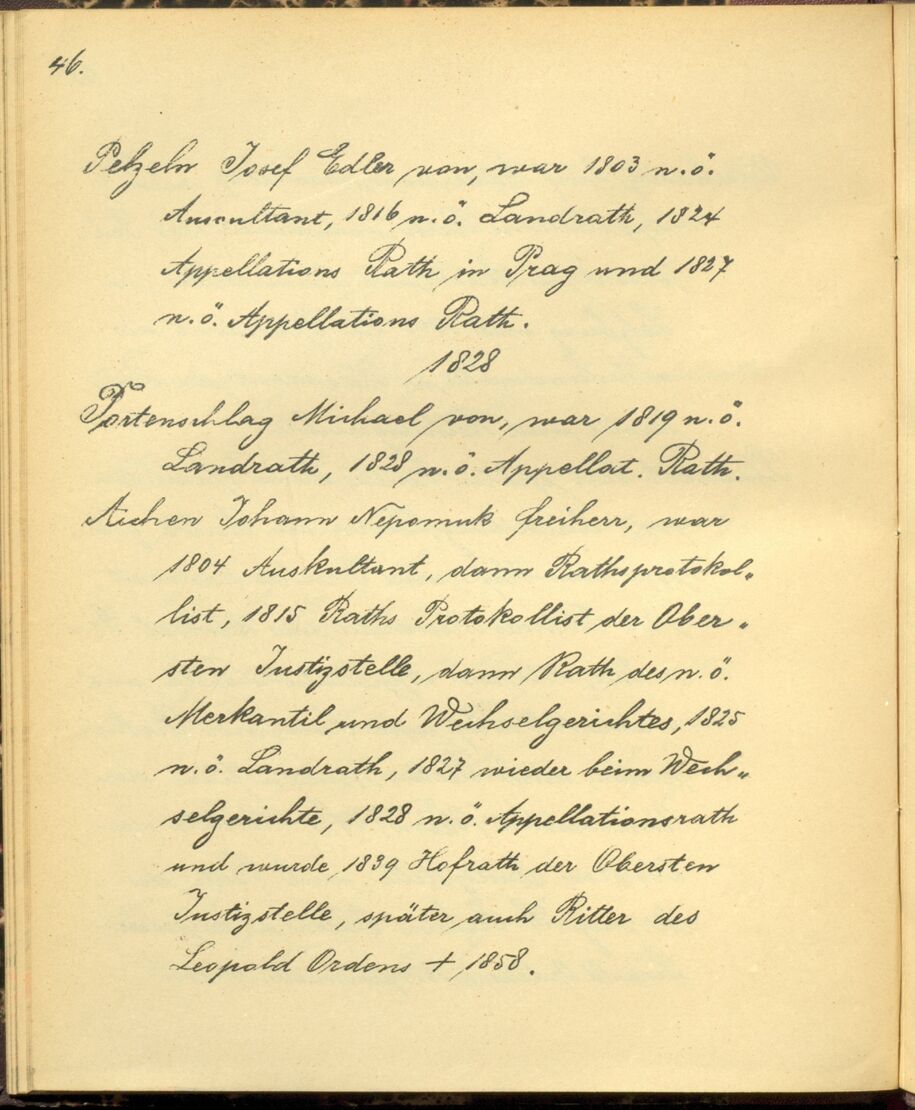 46.
Pelzeln Josef Edler von, war 1803 n.ö.
Auscultant, 1816 n.ö. Landrath, 1824
Appellations Rath in Prag und 1827
n.ö. Appellations Rath.
1828
Portenschlag Michael von, war 1819 n.ö.
Landrath, 1828 n.ö. Appellat. Rath.
Aichen Johann Nepomuk freiherr, war
1804 Auskultant, dann Rathsprotokol„
list, 1815 Raths Protokollist der Ober„
sten Justizstelle, dann Rath des n.ö.
Merkantil und Wechselgerichtes, 1825
n.ö. Landrath, 1827 wieder beim Wech„
selgerichte, 1828 n.ö. Appellationsrath
und wurde 1839 Hofrath der Obersten
Justizstelle, später auch Ritter des
Leopold Ordens + 1858.